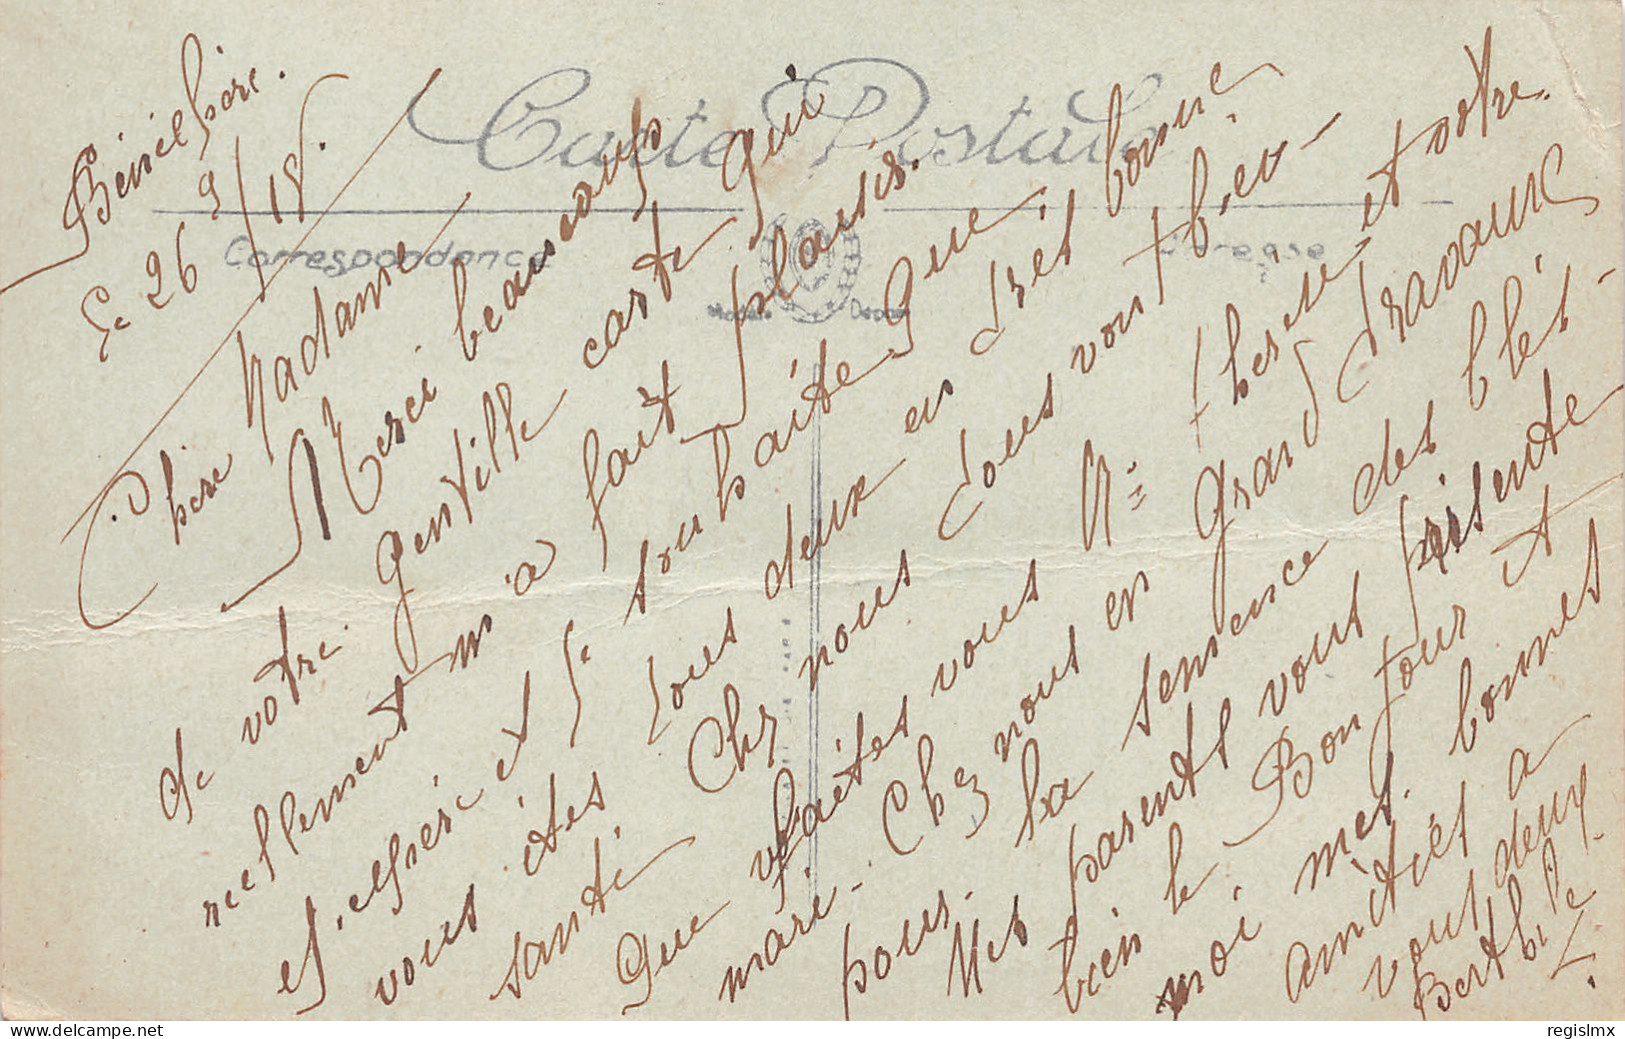 Carte Postale
Correspondance
Adresse
Modèle Déposé
Bénilhore.
Le 26 9/18.
Chère Madame
Merci beaucoup
de votre gentille carte qui
reellement m'a fait plaisir.
et j'espère et Je souhaite que
vous êtes tous deux en très bonne
santé Chz nous tous vont bien
que faites vous Me therese et votre
mari. Chz nous en grand travaux
pour la semence des blés.
Mes parents vous présente
bien le Bonjour et
moi mes bonnes
amitiés a
vous deux
Berthile
regislmx